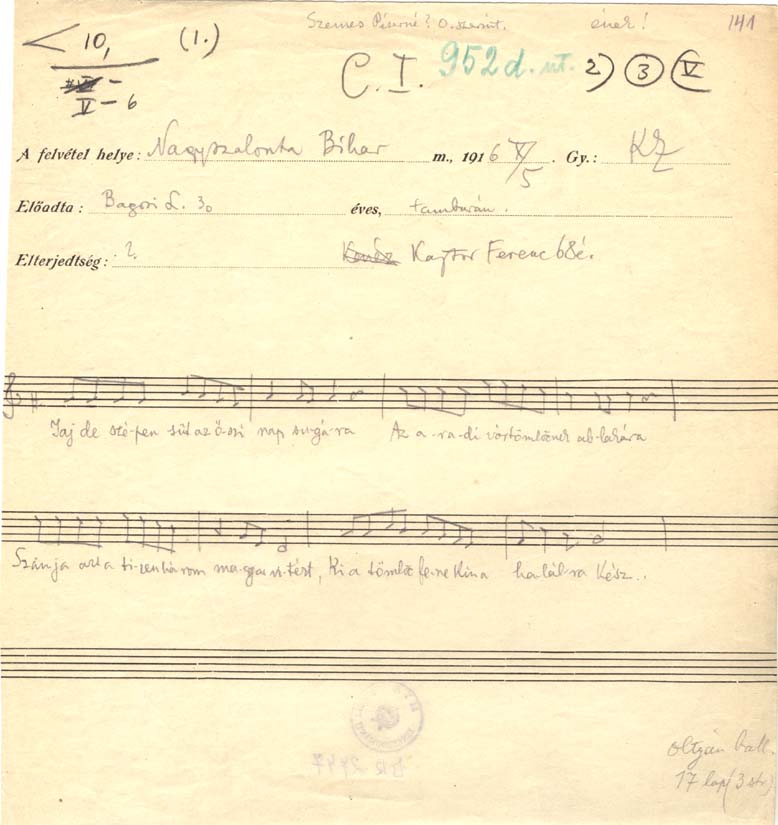 Szemes Péterné? O. szerint. ének! 141
< 10, (1.)
V – 6
C. I. 952 d. 2) 3 V
A felvétel helye: Nagyszalonta Bihar m., 1916 X/5 . Gy.: KZ
Előadta: Bagosi L. 30 éves, tamburán.
Elterjedtség: ?. Kajtor Ferenc 68 é.
Jaj de szé-pen süt az ő-szi nap su-gá-ra Az a-ra-di vártömlöcnek ab-lakára
Szánja azt a ti-zenhá rom ma-gyar vi-tézt, Ki a tömlöc fe-ne kin a ha-lál-ra kész..
17 lap (3 str)